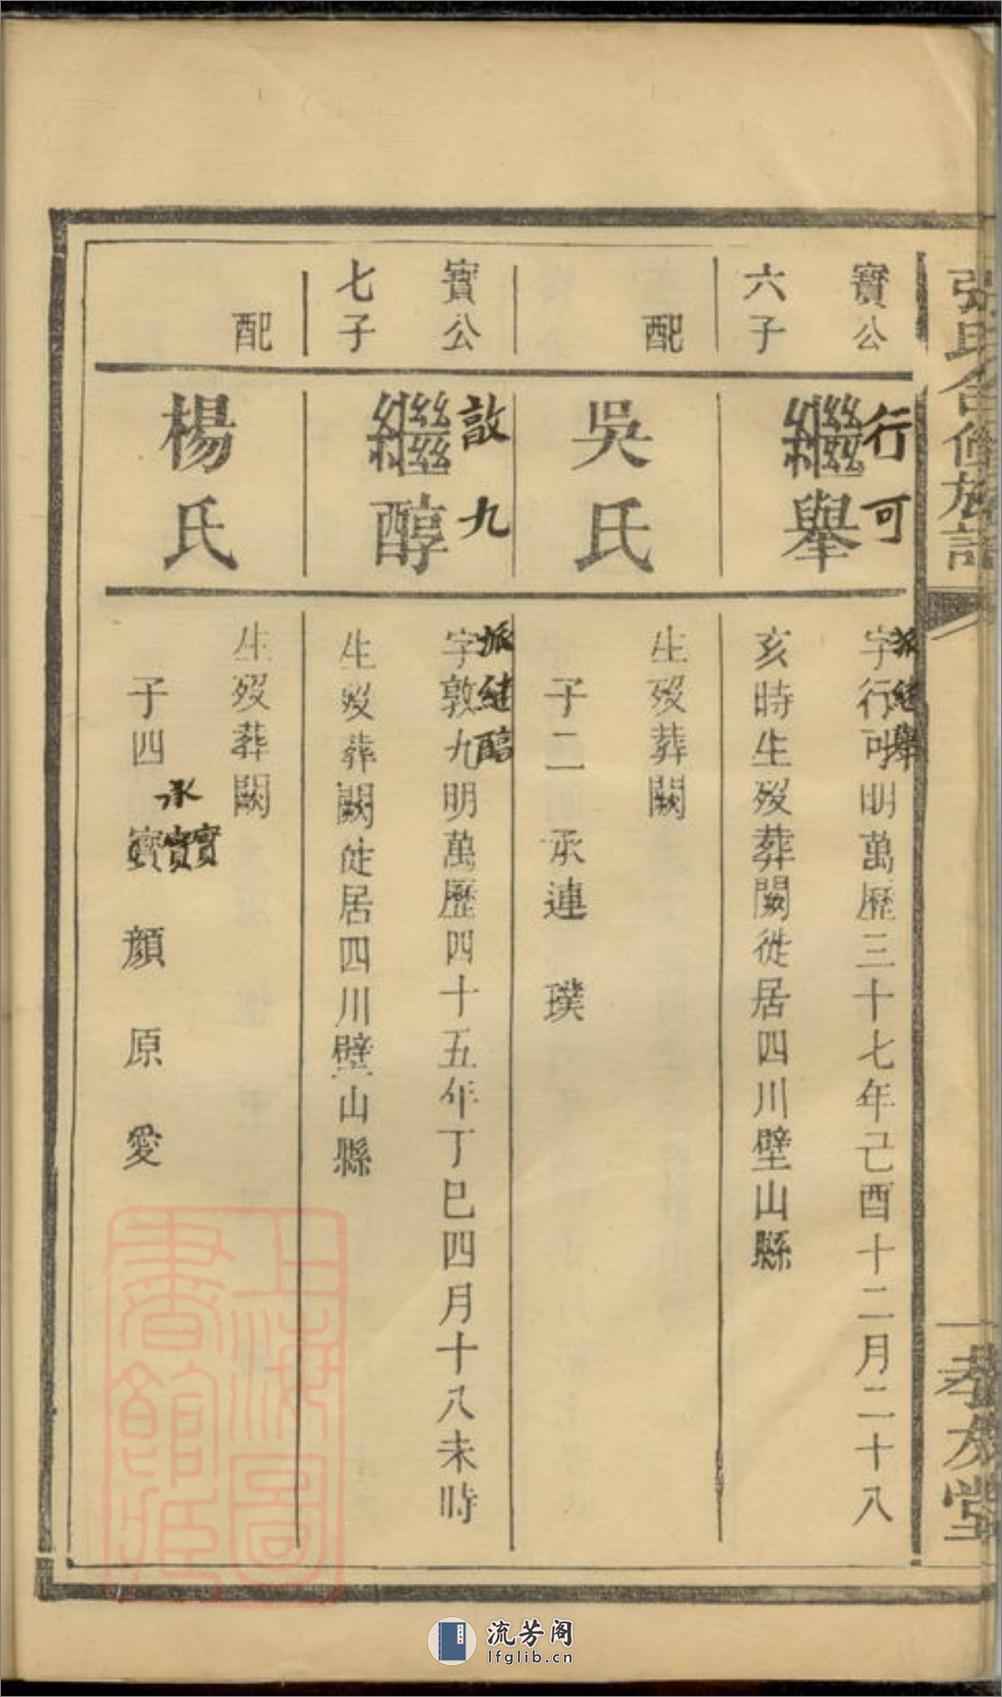 張氏合修族譜
孝友堂
寶公
六子
行可
繼舉
派繼舉
字行可明萬歷三十七年己酉十二月二十八
亥時生歿葬闕徙居四川壁山縣
配
吳氏
生歿葬闕
子二 承連 璞
寶公
七子
敦九
繼醇
派繼醇
字敦九明萬歷四十五年丁巳四月十八未時
生歿葬闕徙居四川壁山縣
配
楊氏
生歿葬闕
子四 寶 顏 原 愛
承
實 實
上海圖
書館藏
流芳阁
lfglib.cn